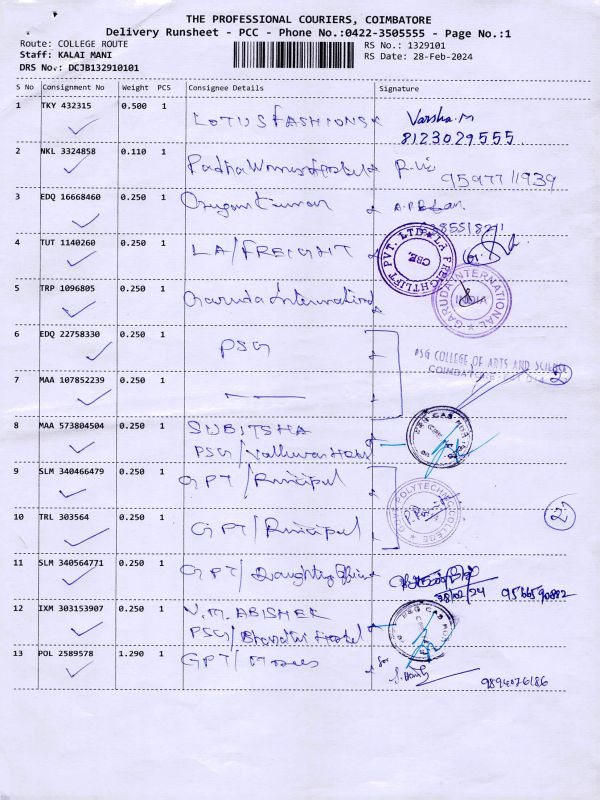 THE PROFESSIONAL COURIERS, COIMBATORE
Delivery Runsheet - PCC - Phone No.:0422-3505555 - Page No.:1
Route: COLLEGE ROUTE
RS No.: 1329101
Staff: KALAI MANI
RS Date: 28-Feb-2024
DRS No.: DCJB132910101
S No Consignment No Weight PCS Consignee Details Signature
1 TKY 432315 0.500 1 LOTUS FASHIONS Varsha.M
8123029555
2 NKL 3324858 0.110 1
3 EDQ 16668460 0.250 1
4 TUT 1140260 0.250 1 LA/FREIGHT
LA FREIGHTLIFT PVT. LTD. CBE.
5 TRP 1096805 0.250 1 Garuda International
GARUDA INTERNATIONAL INDIA
6 EDQ 22758330 0.250 1 PSG
PSG COLLEGE OF ARTS AND SCIENCE
COIMBATORE
7 MAA 107852239 0.250 1 2
8 MAA 573804504 0.250 1 SUBITSHA
PSG/Valluvar
9 SLM 340466479 0.250 1 GPT/Principal
POLYTECHNIC COLLEGE
10 TRL 303564 0.250 1 GPT/Principal 2
11 SLM 340564771 0.250 1 GPT/
28/02/24 9566590882
12 IXM 303153907 0.250 1 V.M. ABISHEK
PSG/Bharathi Hostel
13 POL 2589578 1.290 1 GPT/ for
9894076186